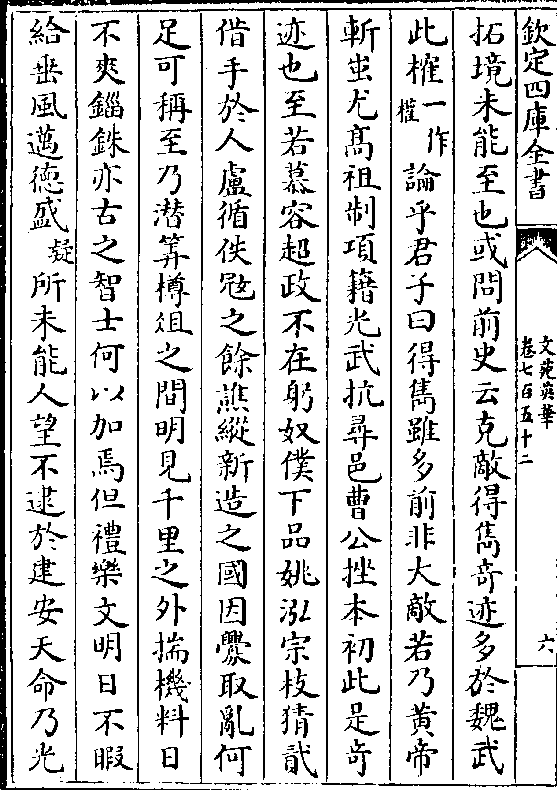 欽定四庫全書
文苑英華
卷七百五十二
六
拓境未能至也或問前史云克敵得雋奇迹多於魏武
此權一作㩲論乎君子曰得雋雖多前非大敵若乃黄帝
斬蚩尤髙祖制項籍光武抗尋邑曹公挫本初此是奇
迹也至若慕容超政不在躬奴僕下品姚泓宗枝猜貳
借手於人盧循佚㓂之餘譙縱新造之國因釁取亂何
足可稱至乃潜筭樽俎之間明見千里之外揣機料日
不爽錙銖亦古之智士何以加焉但禮樂文明日不暇
給垂風邁徳盛疑所未能人望不逮於建安天命乃光